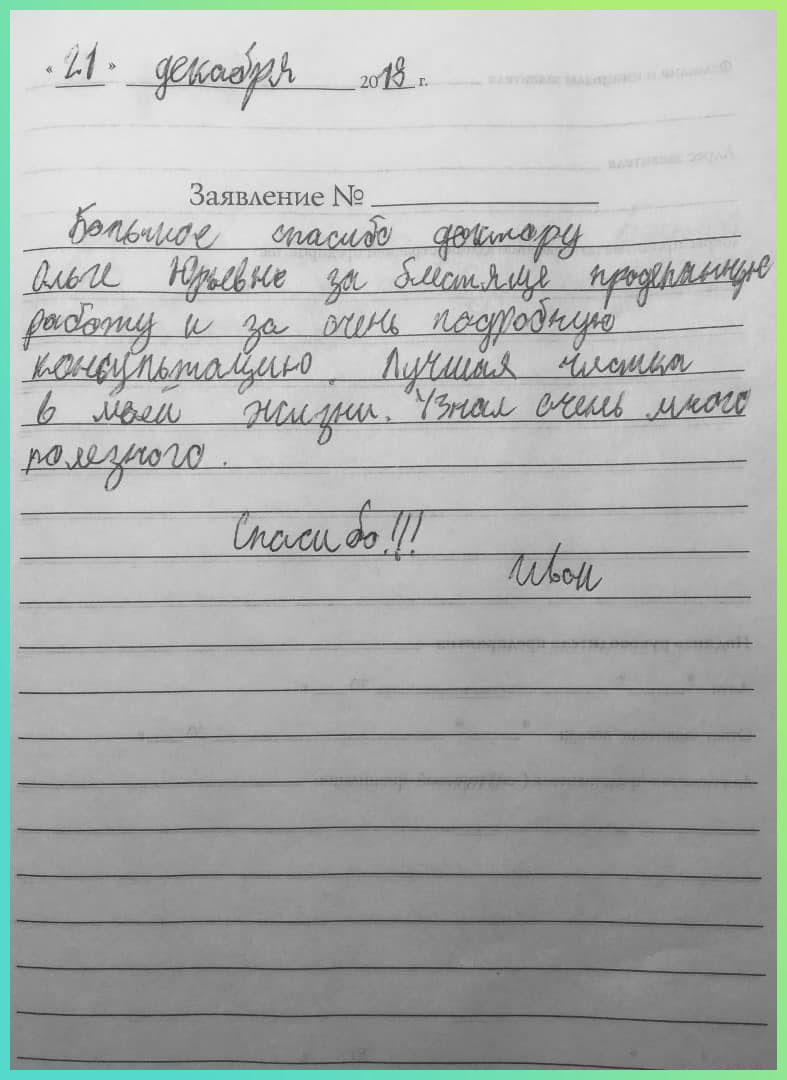 « 21 » декабря 2018 г.
Заявление №
Большое спасибо доктору
Ольге Юрьевне за блестяще проделанную
работу и за очень подробную
консультацию. Лучшая чистка
в моей жизни. Узнал очень много
полезного.
Спасибо!!!
Иван